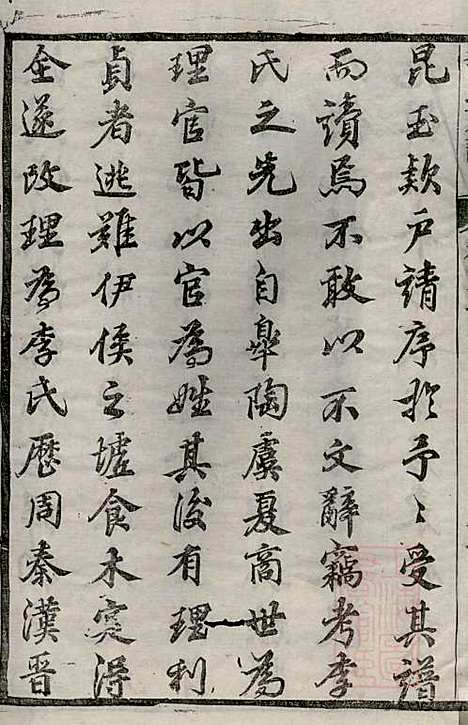 昆玉欵戶請序於予〻受其譜
而讀焉不敢以不文辭竊考李
氏之先出自皐陶虞夏商世為
理官皆以官為姓其後有理利
貞者逃難伊侯之墟食木実得
全遂改理為李氏歷周秦漢晉